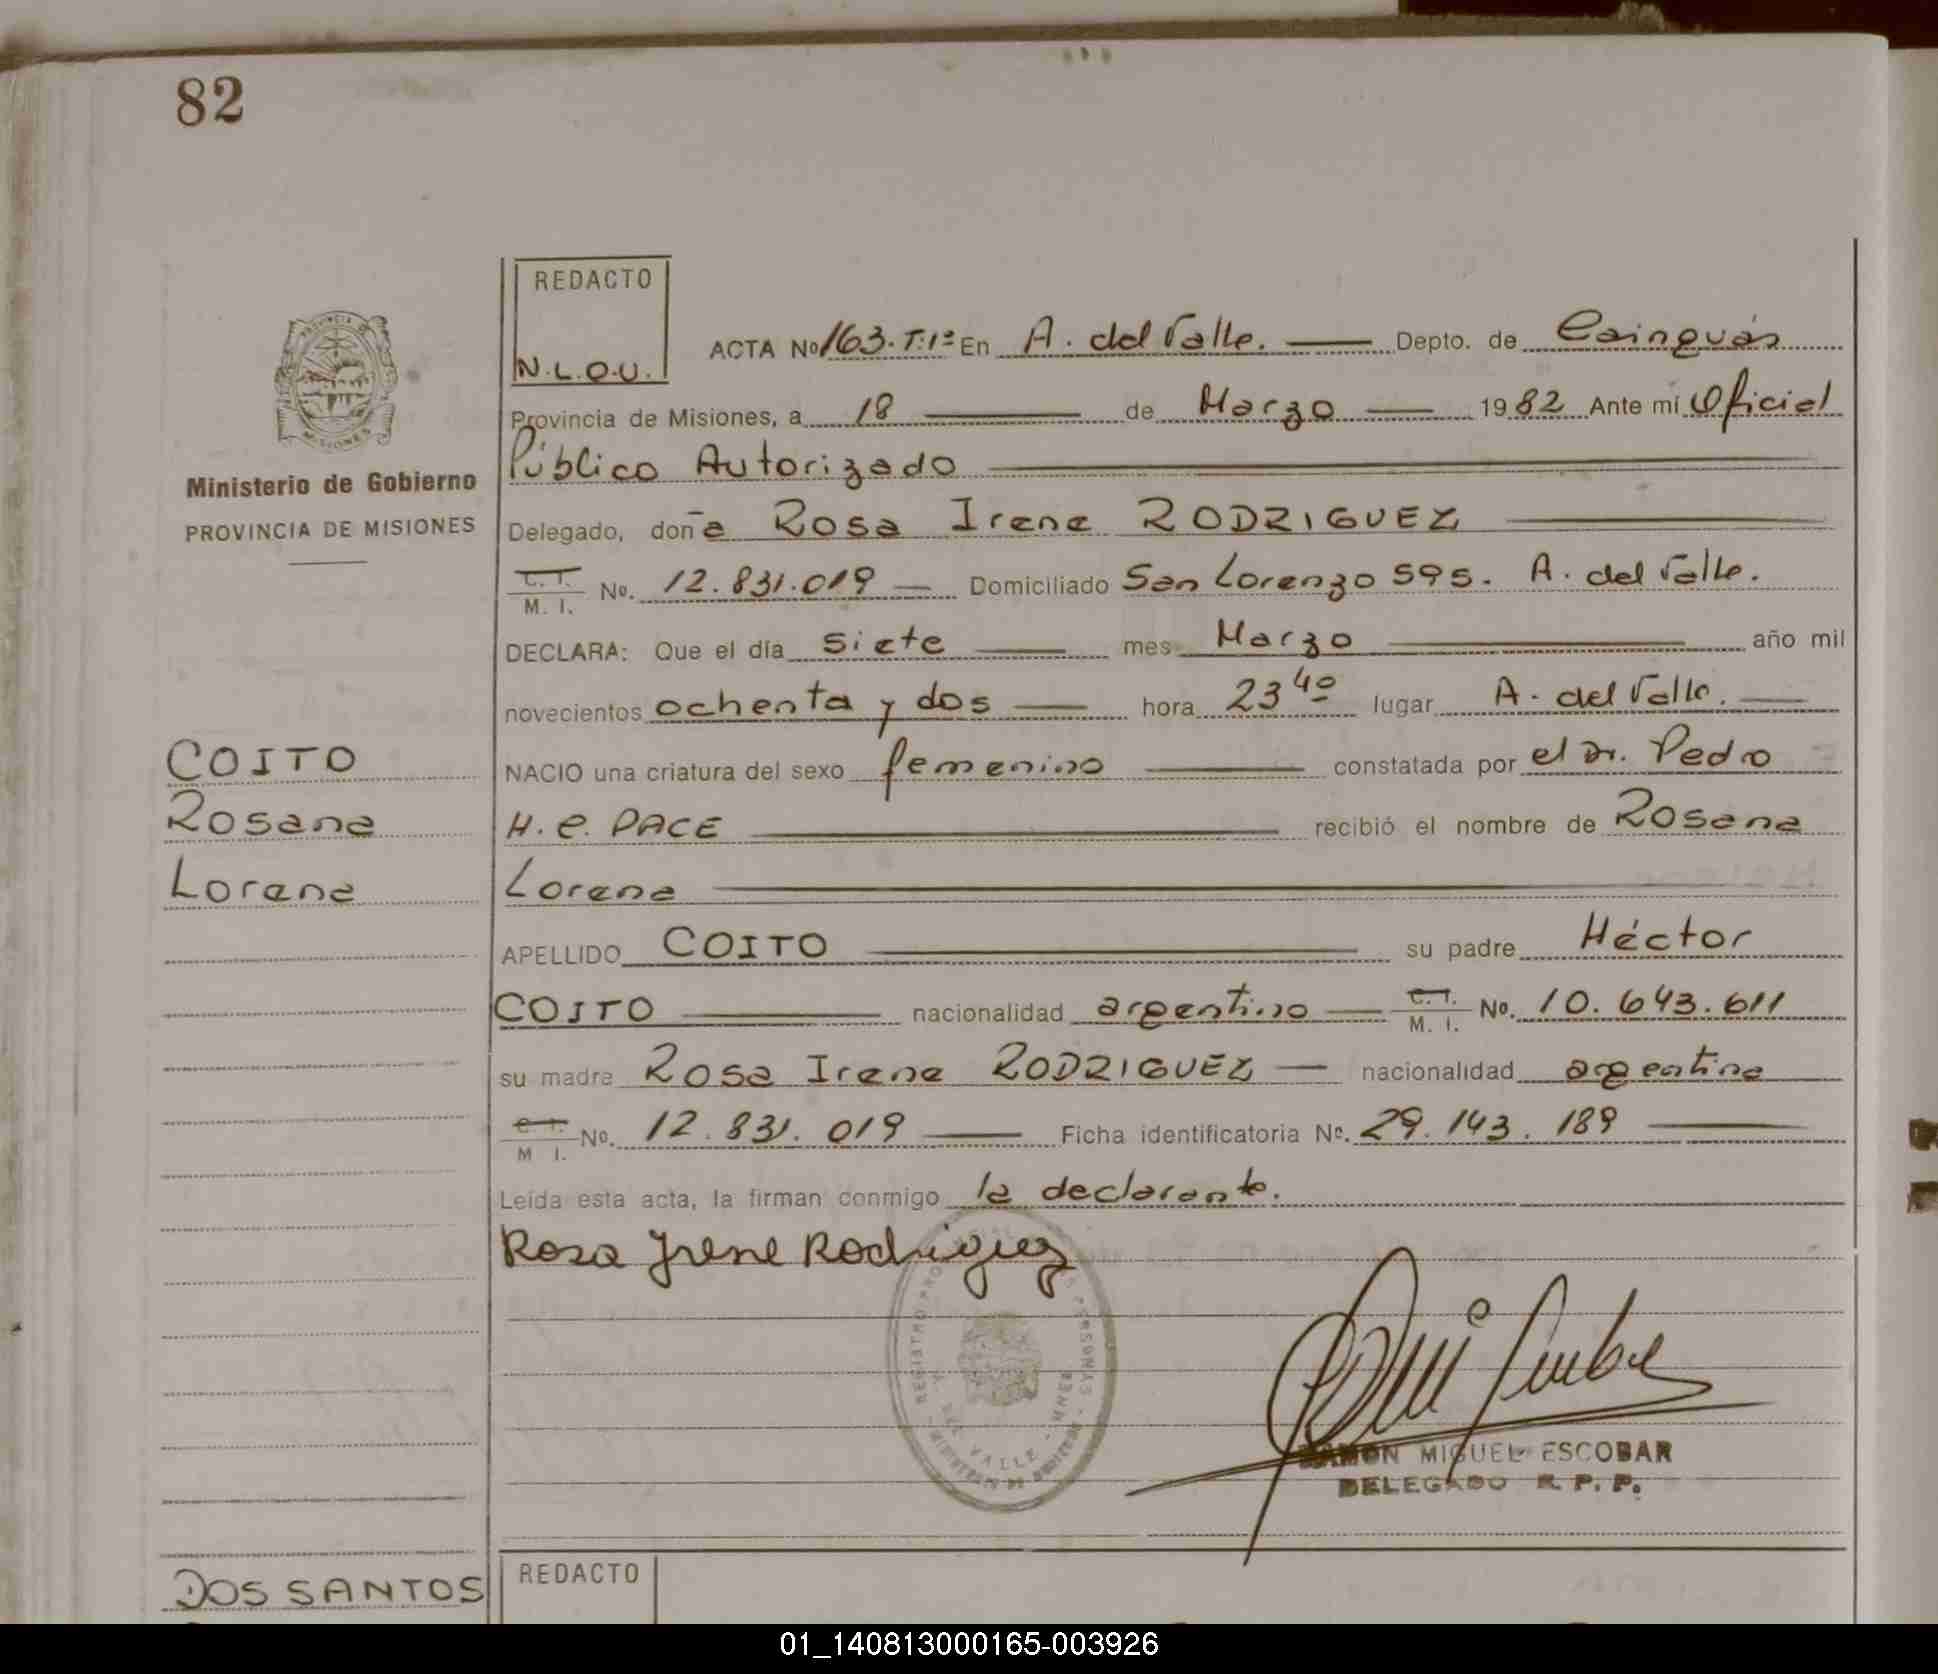 82
REDACTO
N.L.O.U.
ACTA No 163.T:1º En A. del Valle. Depto. de Cainguás
Provincia de Misiones, a 18 de Marzo 1982 Ante mí Oficial
Público Autorizado
Delegado, doña Rosa Irene RODRIGUEZ
C. I.
M. I. No. 12.831.019 Domiciliado San Lorenzo 595. A. del Valle.
DECLARA: Que el día siete mes Marzo año mil
novecientos ochenta y dos hora 23 40 lugar A. del Valle.
NACIO una criatura del sexo femenino constatada por el Dr. Pedro
H. C. PACE recibió el nombre de Rosana
Lorena
APELLIDO COITO su padre Héctor
COITO nacionalidad argentino C. I. M. I. No. 10.643.611
su madre Rosa Irene RODRIGUEZ nacionalidad argentina
C. I. M I. No. 12.831.019 Ficha identificatoria No. 29.143.189
Leída esta acta, la firman conmigo la declarante.
Rosa Irene Rodriguez
RAMON MIGUEL ESCOBAR
DELEGADO R. P. P.
PROVINCIA DE
MISIONES
Ministerio de Gobierno
PROVINCIA DE MISIONES
COITO
Rosana
Lorena
REGISTRO PERSONAS
DEL VALLE - MNES
DOS SANTOS
REDACTO
01_140813000165-003926